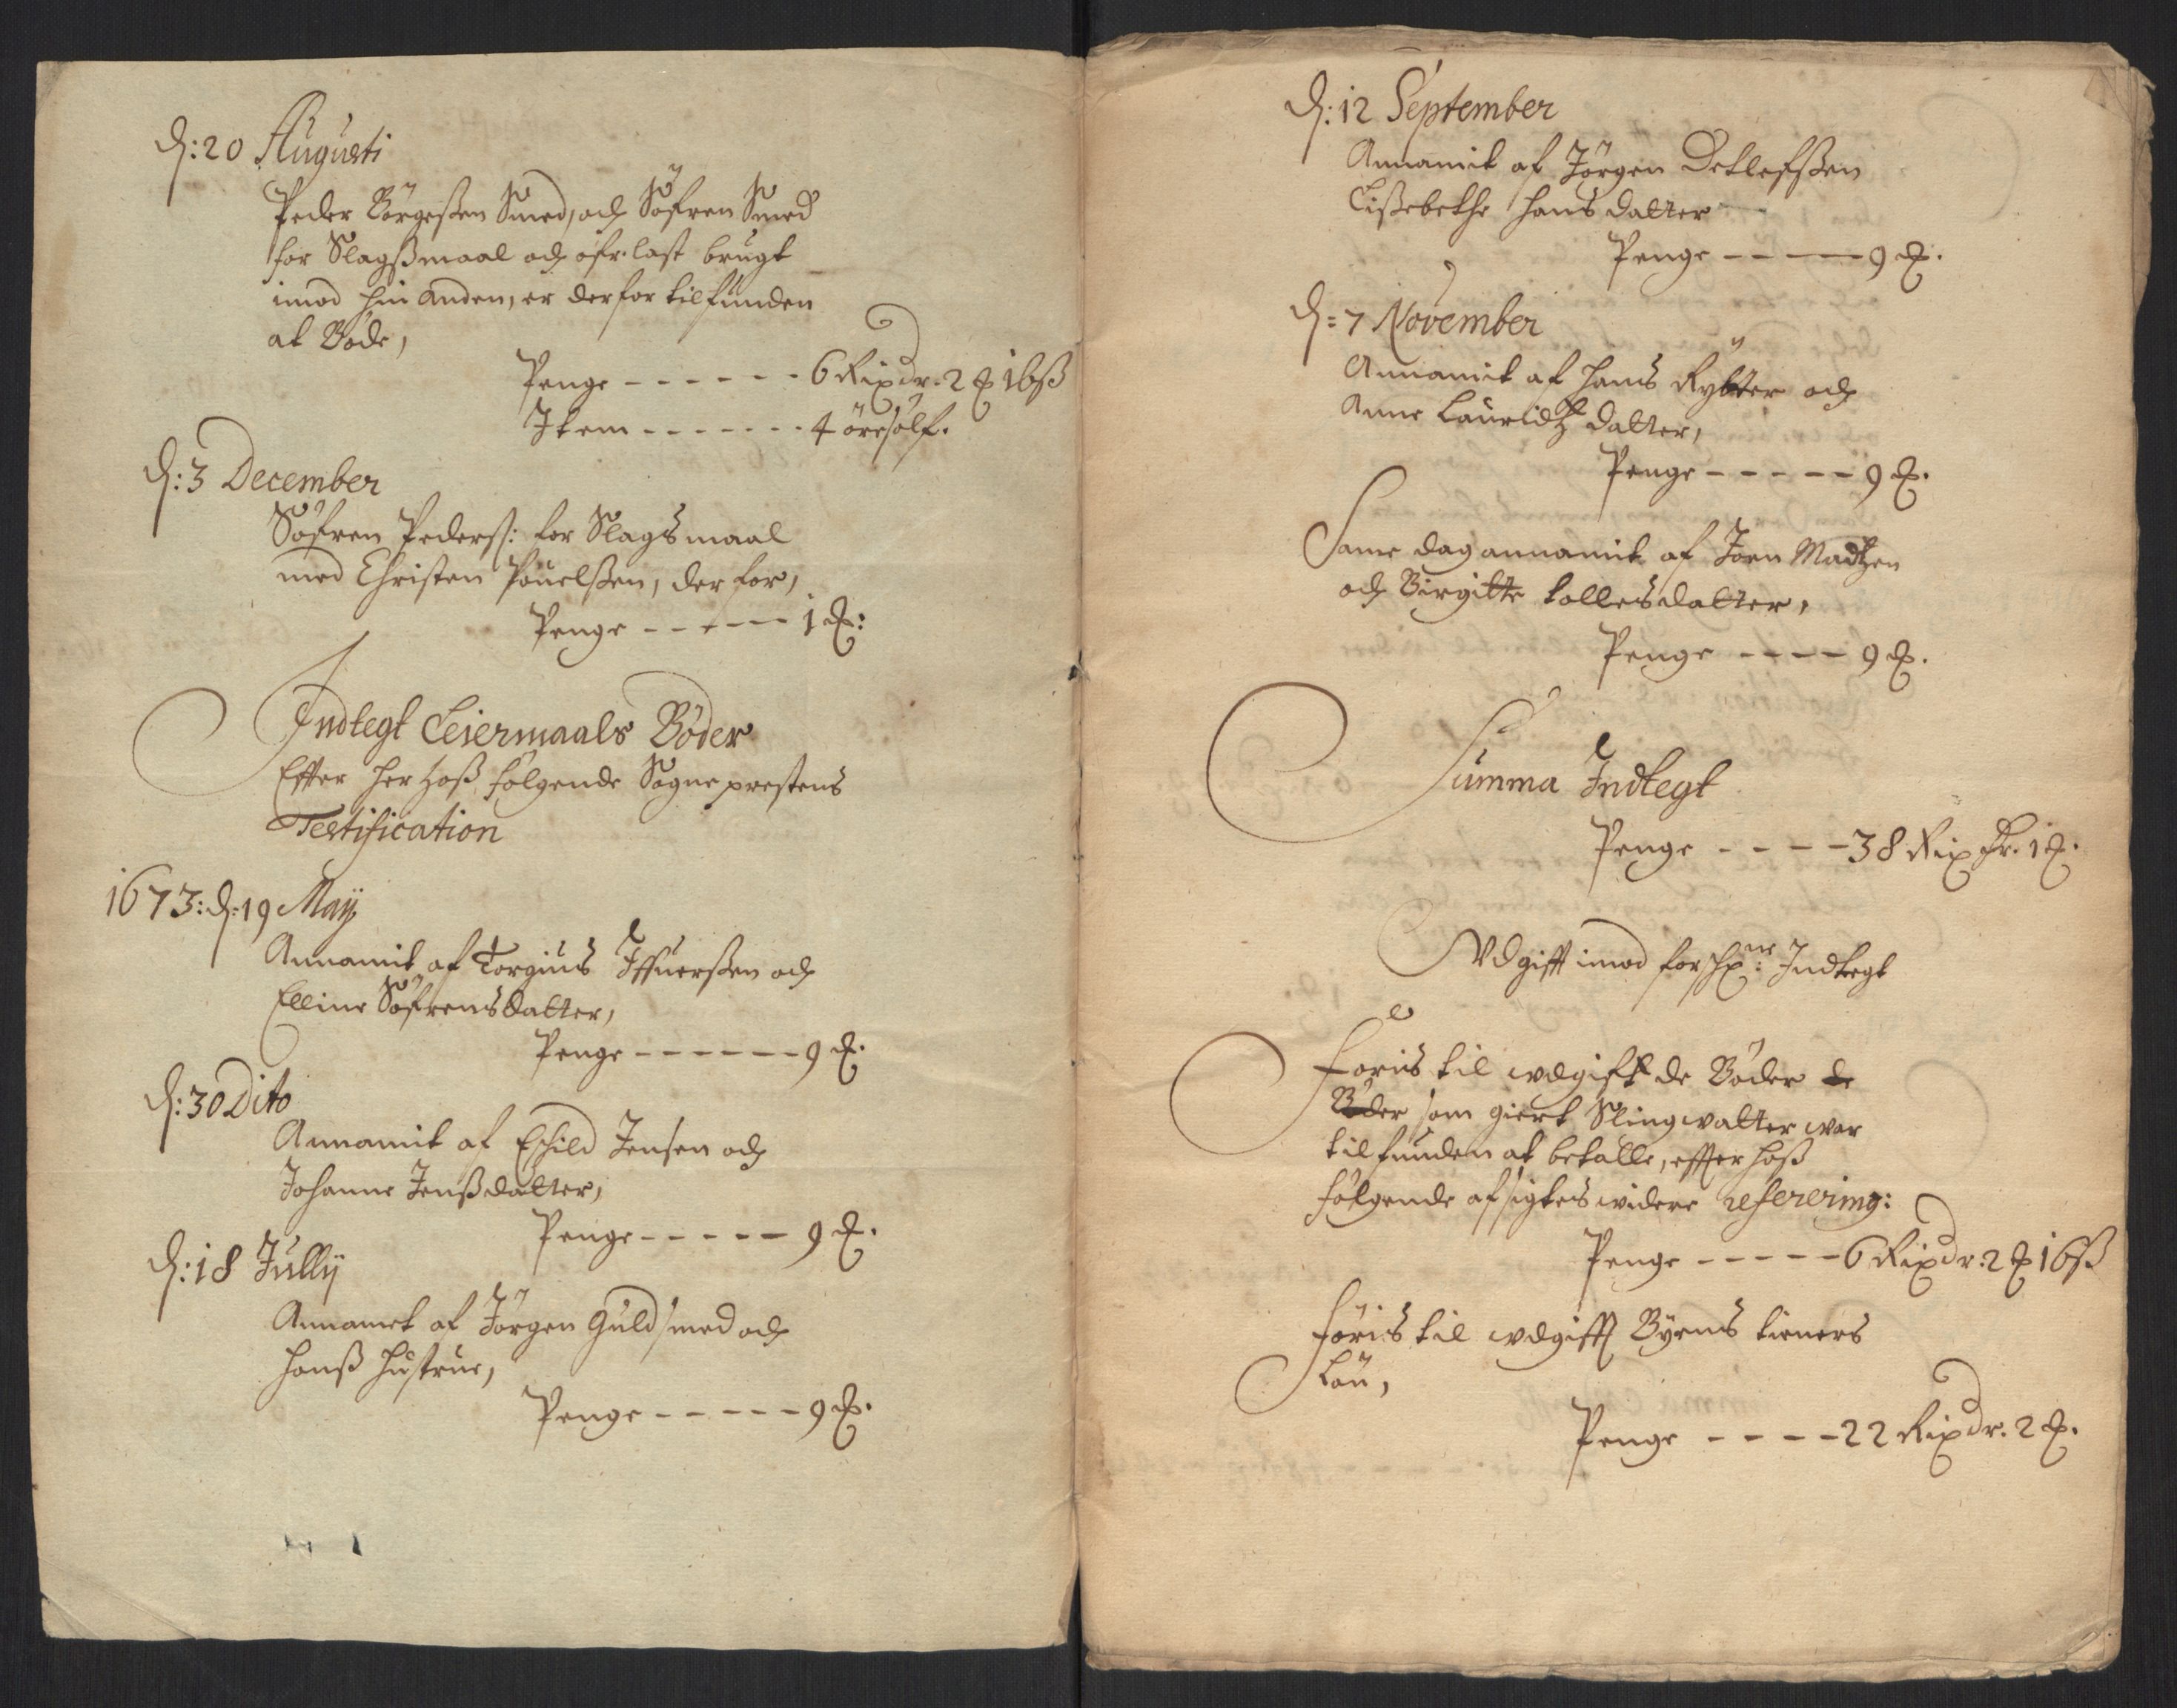 d: 20 Augusti
Peder Börgeßen Smed, och Söfren Smed
for Slagßmaal och ofr.last brugt
imod hin anden, er derfor tilfunden
at Böde,
Penge - - - - - - 6 Rixdr. 2 ℔ 16 ß
Item - - - - - - - 4 öresölf.
d: 3 December
Söfren Pederss: for Slagsmaal
med Christen Pouelßen, der for,
Penge - - - - - - 1 ℔:
Indtegt Leiermaals Böder
Effter her hoß fölgende Sogneprestens
Testification
1673: d: 19 Maij
Annamit af Torgius Iffuerßen och
Elline Söfrensdatter,
Penge - - - - - - 9 ℔.
d: 30 Dito
Annamit af Eschild Jensen och
Johanne Jenßdatter,
Penge - - - - - 9 ℔.
d: 18 Jullij
Annamet af Jörgen Guldsmed och
hanß hustrue,
Penge - - - - - 9 ℔.
d: 12 September
Annamit af Jörgen Detlefßen
Lißebethe Hansdatter
Penge - - - - 9 ℔.
d: 7 November
Annamit af Hans Rytter och
Anne Lauridtz datter,
Penge - - - - - 9 ℔.
Same dag annamit af Joen Madtzen
och Birgitte tollesdatter,
Penge - - - - 9 ℔.
Summa Indtegt
Penge - - - - 38 Rixdr. 1 ℔.
Vdgifft imod forschr:ne Indtegt
Föris til wdgifft de Böder de
Böder som giert Slingwalter war
tilfunden at betalle, effter hoß
fölgende afsigtes widere referering:
Penge - - - - - 6 Rixdr: 2 ℔ 16 ß
Föris til wdgifft Byens tieners
Lön,
Penge - - - - 22 Rixdr. 2 ℔.